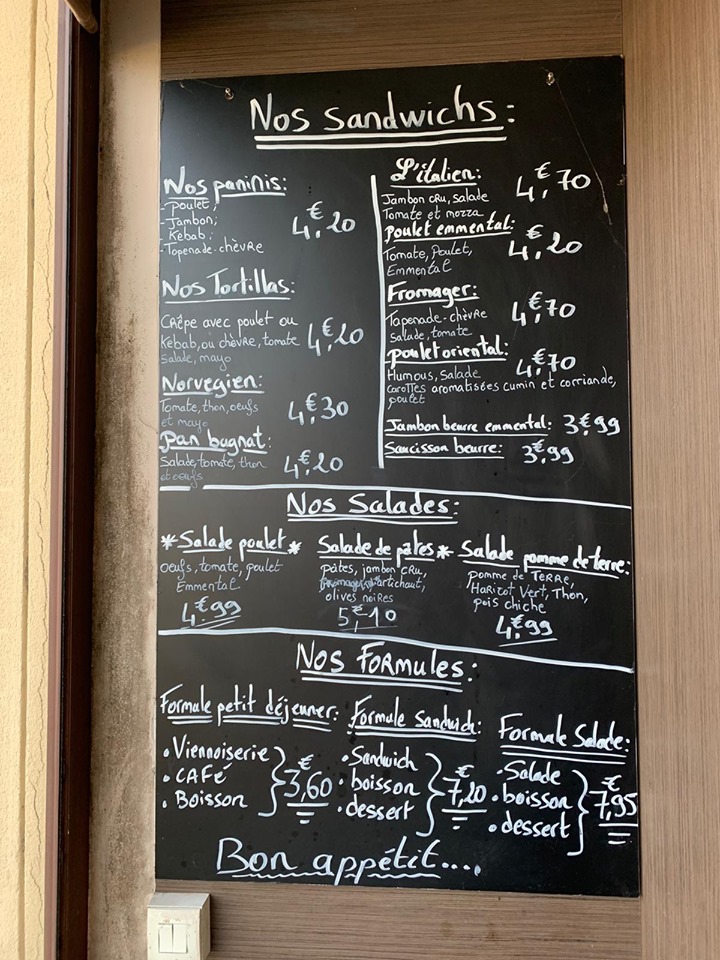 Nos sandwichs:
Nos paninis:
- poulet;
- Jambon;
- Kebab;
- Topenade-chèvre
4,€20
Nos Tortillas:
Crêpe avec poulet ou
Kebab, ou chèvre, tomate
salade, mayo
4,€20
Norvegien:
Tomate, thon, oeufs
et mayo
4,€30
Pan bagnat:
Salade, tomate, thon
et oeufs
4,€20
L'italien:
Jambon cru, salade
Tomate et mozza
4,€70
poulet emmental:
Tomate, Poulet,
Emmental
4,€20
Fromager:
Tapenade-chèvre
Salade, tomate
4,€70
poulet oriental:
Humous, Salade
carottes aromatisées cumin et corriande,
poulet
4,€70
Jambon beurre emmental: 3,€99
Saucisson beurre: 3,€99
Nos Salades:
*Salade poulet*
oeufs, tomate, poulet
Emmental
4,€99
Salade de pâtes*
pâtes, jambon cru,
artichaut,
olives noires
5,€10
Salade pomme de terre:
pomme de Terre,
Haricot Vert, Thon,
pois chiche
4,€99
Nos Formules:
Formule petit déjeuner:
• Viennoiserie
• CAFé
• Boisson
3,€60
Formule Sandwich:
• Sandwich
• boisson
• dessert
7,€20
Formule Salade:
• Salade
• boisson
• dessert
7,€95
Bon appétit....